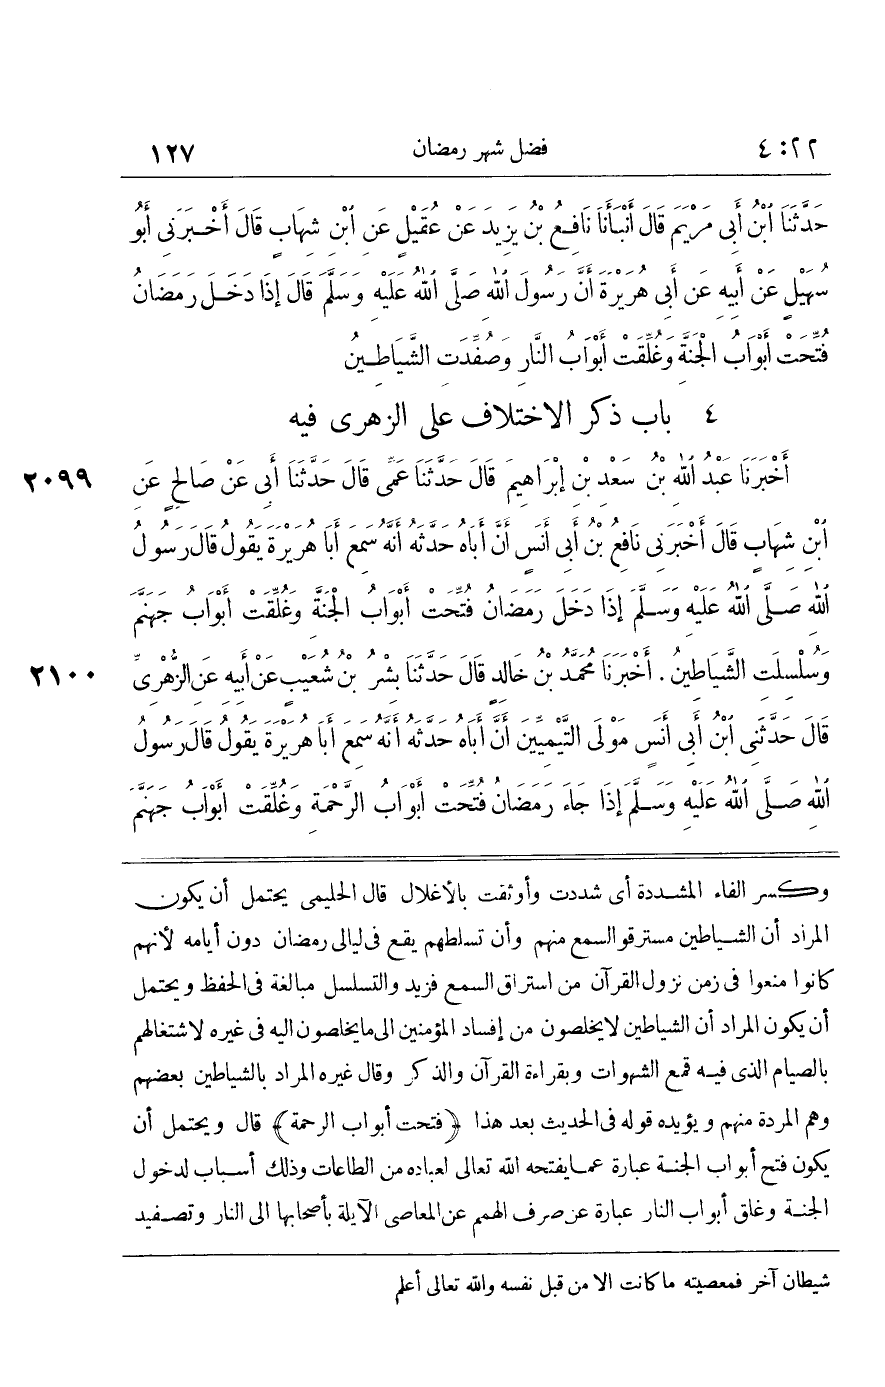 ٢٢ : ٤ فضل شهر رمضان ١٢٧
حَدَّثَنَا ابْنُ أَبِى مَرْيَمَ قَالَ أَنْبَأَنَا نَافِعُ بْنُ يَزِيدَ عَنْ عُقَيْلٍ عَنِ ابْنِ شِهَابٍ قَالَ أَخْبَرَنِى أَبُو
سُهَيْلٍ عَنْ أَبِيهِ عَنْ أَبِى هُرَيْرَةَ أَنَّ رَسُولَ اللهِ صَلَّى اللهُ عَلَيْهِ وَسَلَّمَ قَالَ إِذَا دَخَلَ رَمَضَانُ
فُتِّحَتْ أَبْوَابُ الْجَنَّةِ وَغُلِّقَتْ أَبْوَابُ النَّارِ وَصُفِّدَتِ الشَّيَاطِينُ
٤ باب ذكر الاختلاف على الزهرى فيه
أَخْبَرَنَا عَبْدُ اللهِ بْنُ سَعْدِ بْنِ إِبْرَاهِيمَ قَالَ حَدَّثَنَا عَمِّى قَالَ حَدَّثَنَا أَبِى عَنْ صَالِحٍ عَنِ ٢٠٩٩
ابْنِ شِهَابٍ قَالَ أَخْبَرَنِى نَافِعُ بْنُ أَبِى أَنَسٍ أَنَّ أَبَاهُ حَدَّثَهُ أَنَّهُ سَمِعَ أَبَا هُرَيْرَةَ يَقُولُ قَالَ رَسُولُ
اللهِ صَلَّى اللهُ عَلَيْهِ وَسَلَّمَ إِذَا دَخَلَ رَمَضَانُ فُتِّحَتْ أَبْوَابُ الْجَنَّةِ وَغُلِّقَتْ أَبْوَابُ جَهَنَّمَ
وَسُلْسِلَتِ الشَّيَاطِينُ . أَخْبَرَنَا مُحَمَّدُ بْنُ خَالِدٍ قَالَ حَدَّثَنَا بِشْرُ بْنُ شُعَيْبٍ عَنْ أَبِيهِ عَنِ الزُّهْرِىِّ ٢١٠٠
قَالَ حَدَّثَنِى ابْنُ أَبِى أَنَسٍ مَوْلَى التَّيْمِيِّينَ أَنَّ أَبَاهُ حَدَّثَهُ أَنَّهُ سَمِعَ أَبَا هُرَيْرَةَ يَقُولُ قَالَ رَسُولُ
اللهِ صَلَّى اللهُ عَلَيْهِ وَسَلَّمَ إِذَا جَاءَ رَمَضَانُ فُتِّحَتْ أَبْوَابُ الرَّحْمَةِ وَغُلِّقَتْ أَبْوَابُ جَهَنَّمَ
وكسر الفاء المشددة أى شددت وأوثقت بالأغلال قال الحليمى يحتمل أن يكون
المراد أن الشياطين مسترقو السمع منهم وأن تسلطهم يقع فى ليالى رمضان دون أيامه لأنهم
كانوا منعوا فى زمن نزول القرآن من استراق السمع فزيد والتسلسل مبالغة فى الحفظ ويحتمل
أن يكون المراد أن الشياطين لايخلصون من إفساد المؤمنين الى مايخلصون اليه فى غيره لاشتغالهم
بالصيام الذى فيه قمع الشهوات وبقراءة القرآن والذكر وقال غيره المراد بالشياطين بعضهم
وهم المردة منهم ويؤيده قوله فى الحديث بعد هذا ﴿فتحت أبواب الرحمة﴾ قال ويحتمل أن
يكون فتح أبواب الجنة عبارة عما يفتحه الله تعالى لعباده من الطاعات وذلك أسباب لدخول
الجنة وغلق أبواب النار عبارة عن صرف الهمم عن المعاصى الآيلة بأصحابها الى النار وتصفيد
شيطان آخر فمعصيته ما كانت الا من قبل نفسه والله تعالى أعلم